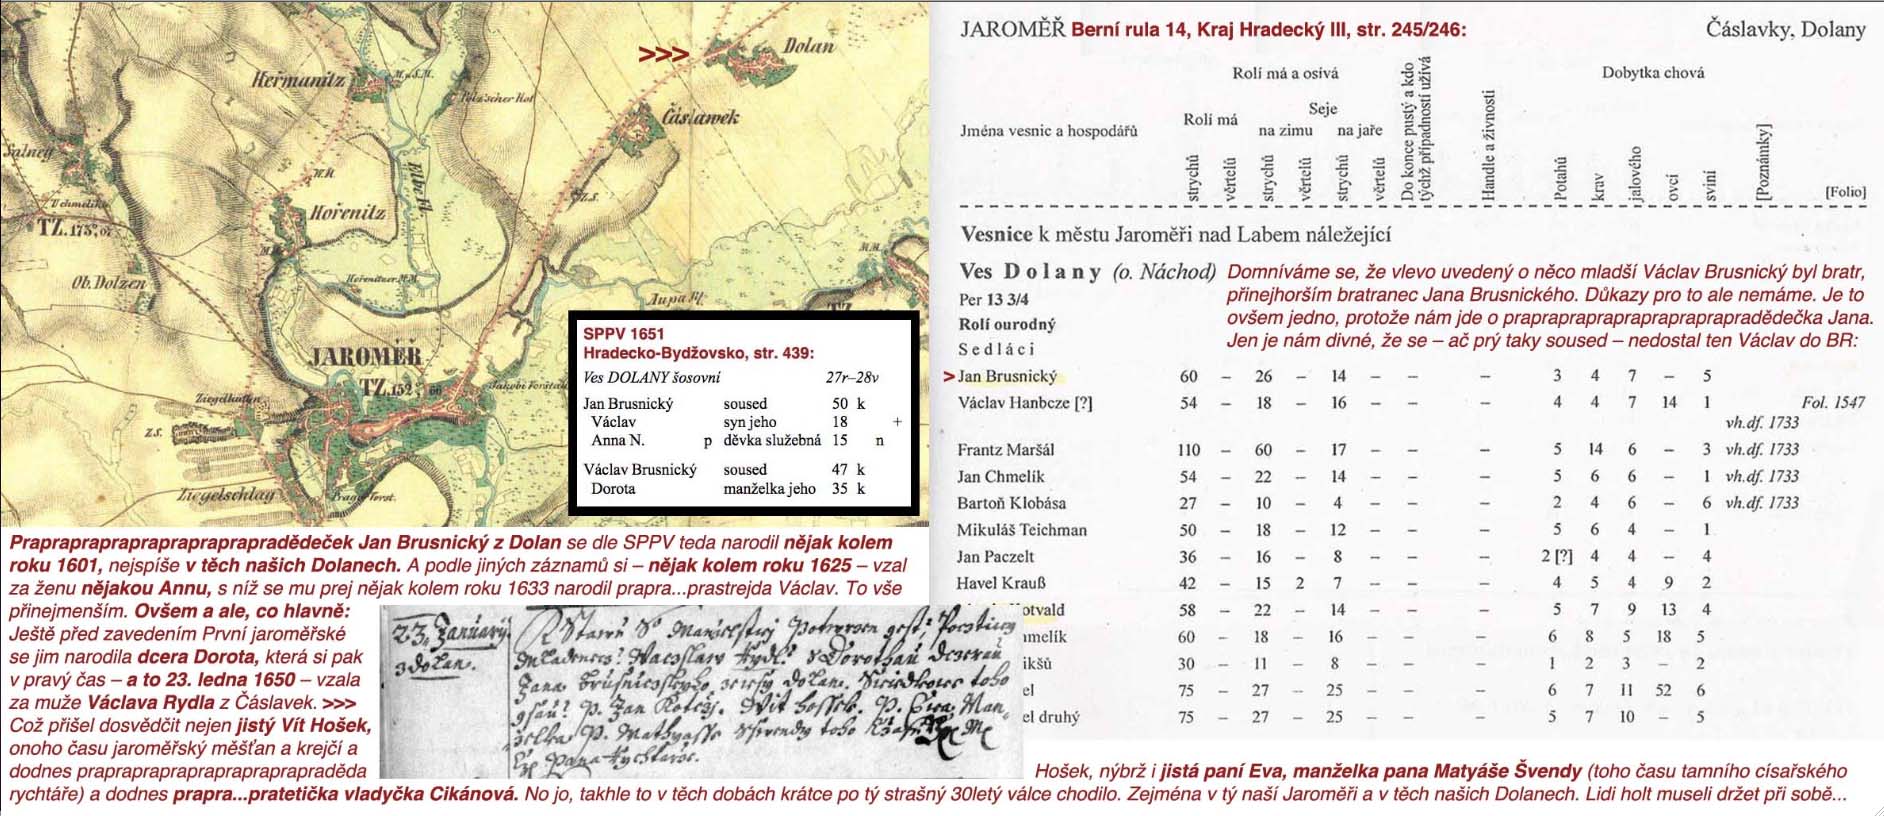 Heřmanitz
M.u.S.M.
Dolan
>>>
Čáslawek
Salney
W.H.
Elbe Fl.
Hořenitz
Z.S.
Ob. Dolzen
Hořenitner M.M.
Aupa Fl.
M.M.
JAROMĚŘ
Jakobi Vorstadt
Ziegelhütten
Z.S.
Ziegelschlag
Prager Vorst.
SPPV 1651
Hradecko-Bydžovsko, str. 439:
Ves DOLANY šosovní 27r–28v
Jan Brusnický soused 50 k
Václav syn jeho 18 +
Anna N. p děvka služebná 15 n
Václav Brusnický soused 47 k
Dorota manželka jeho 35 k
JAROMĚŘ Berní rula 14, Kraj Hradecký III, str. 245/246: Čáslavky, Dolany
Rolí má a osívá Dobytka chová
Seje
Rolí má
Jména vesnic a hospodářů na zimu na jaře
strychů věrtelů strychů věrtelů strychů věrtelů Do konce pustý a kdo týchž případností užívá Handle a živnosti Potahů krav jalového ovcí sviní [Poznámky] [Folio]
Vesnice k městu Jaroměři nad Labem náležející
Ves Dolany (o. Náchod) Domníváme se, že vlevo uvedený o něco mladší Václav Brusnický byl bratr,
Per 13 3/4 přinejhorším bratranec Jana Brusnického. Důkazy pro to ale nemáme. Je to
Rolí ourodný ovšem jedno, protože nám jde o praprapraprapraprapraprapradědečka Jana.
Sedláci Jen je nám divné, že se – ač prý taky soused – nedostal ten Václav do BR:
> Jan Brusnický 60 – 26 – 14 – – – 3 4 7 – 5
Václav Hanbcze [?] 54 – 18 – 16 – – – 4 4 7 14 1 Fol. 1547
vh.df. 1733
Frantz Maršál 110 – 60 – 17 – – – 5 14 6 – 3 vh.df. 1733
Jan Chmelík 54 – 22 – 14 – – – 5 6 6 – 1 vh.df. 1733
Bartoň Klobása 27 – 10 – 4 – – – 2 4 6 – 6 vh.df. 1733
Mikuláš Teichman 50 – 18 – 12 – – – 5 6 4 – 1
Jan Paczelt 36 – 16 – 8 – – – 2 [?] 4 4 – 4
Havel Krauß 42 – 15 2 7 – – – 4 5 4 9 2
otvald 58 – 22 – 14 – – – 5 7 9 13 4
melík 60 – 18 – 16 – – – 6 8 5 18 5
ikšů 30 – 11 – 8 – – – 1 2 3 – 2
el 75 – 27 – 25 – – – 6 7 11 52 6
el druhý 75 – 27 – 25 – – – 5 7 10 – 5
Praprapraprapraprapraprapradědeček Jan Brusnický z Dolan se dle SPPV teda narodil nějak kolem
roku 1601, nejspíše v těch našich Dolanech. A podle jiných záznamů si – nějak kolem roku 1625 – vzal
za ženu nějakou Annu, s níž se mu prej nějak kolem roku 1633 narodil prapra...prastrejda Václav. To vše
přinejmenším. Ovšem a ale, co hlavně:
Ještě před zavedením První jaroměřské
se jim narodila dcera Dorota, která si pak
v pravý čas – a to 23. ledna 1650 – vzala
za muže Václava Rydla z Čáslavek. >>>
Což přišel dosvědčit nejen jistý Vít Hošek,
onoho času jaroměřský měšťan a krejčí a
dodnes praprapraprapraprapraprapraděda
23. January
z Dolan.
Hošek, nýbrž i jistá paní Eva, manželka pana Matyáše Švendy (toho času tamního císařského
rychtáře) a dodnes prapra...pratetička vladyčka Cikánová. No jo, takhle to v těch dobách krátce po tý strašný 30letý válce chodilo. Zejména v tý naší Jaroměři a v těch našich Dolanech. Lidi holt museli držet při sobě...